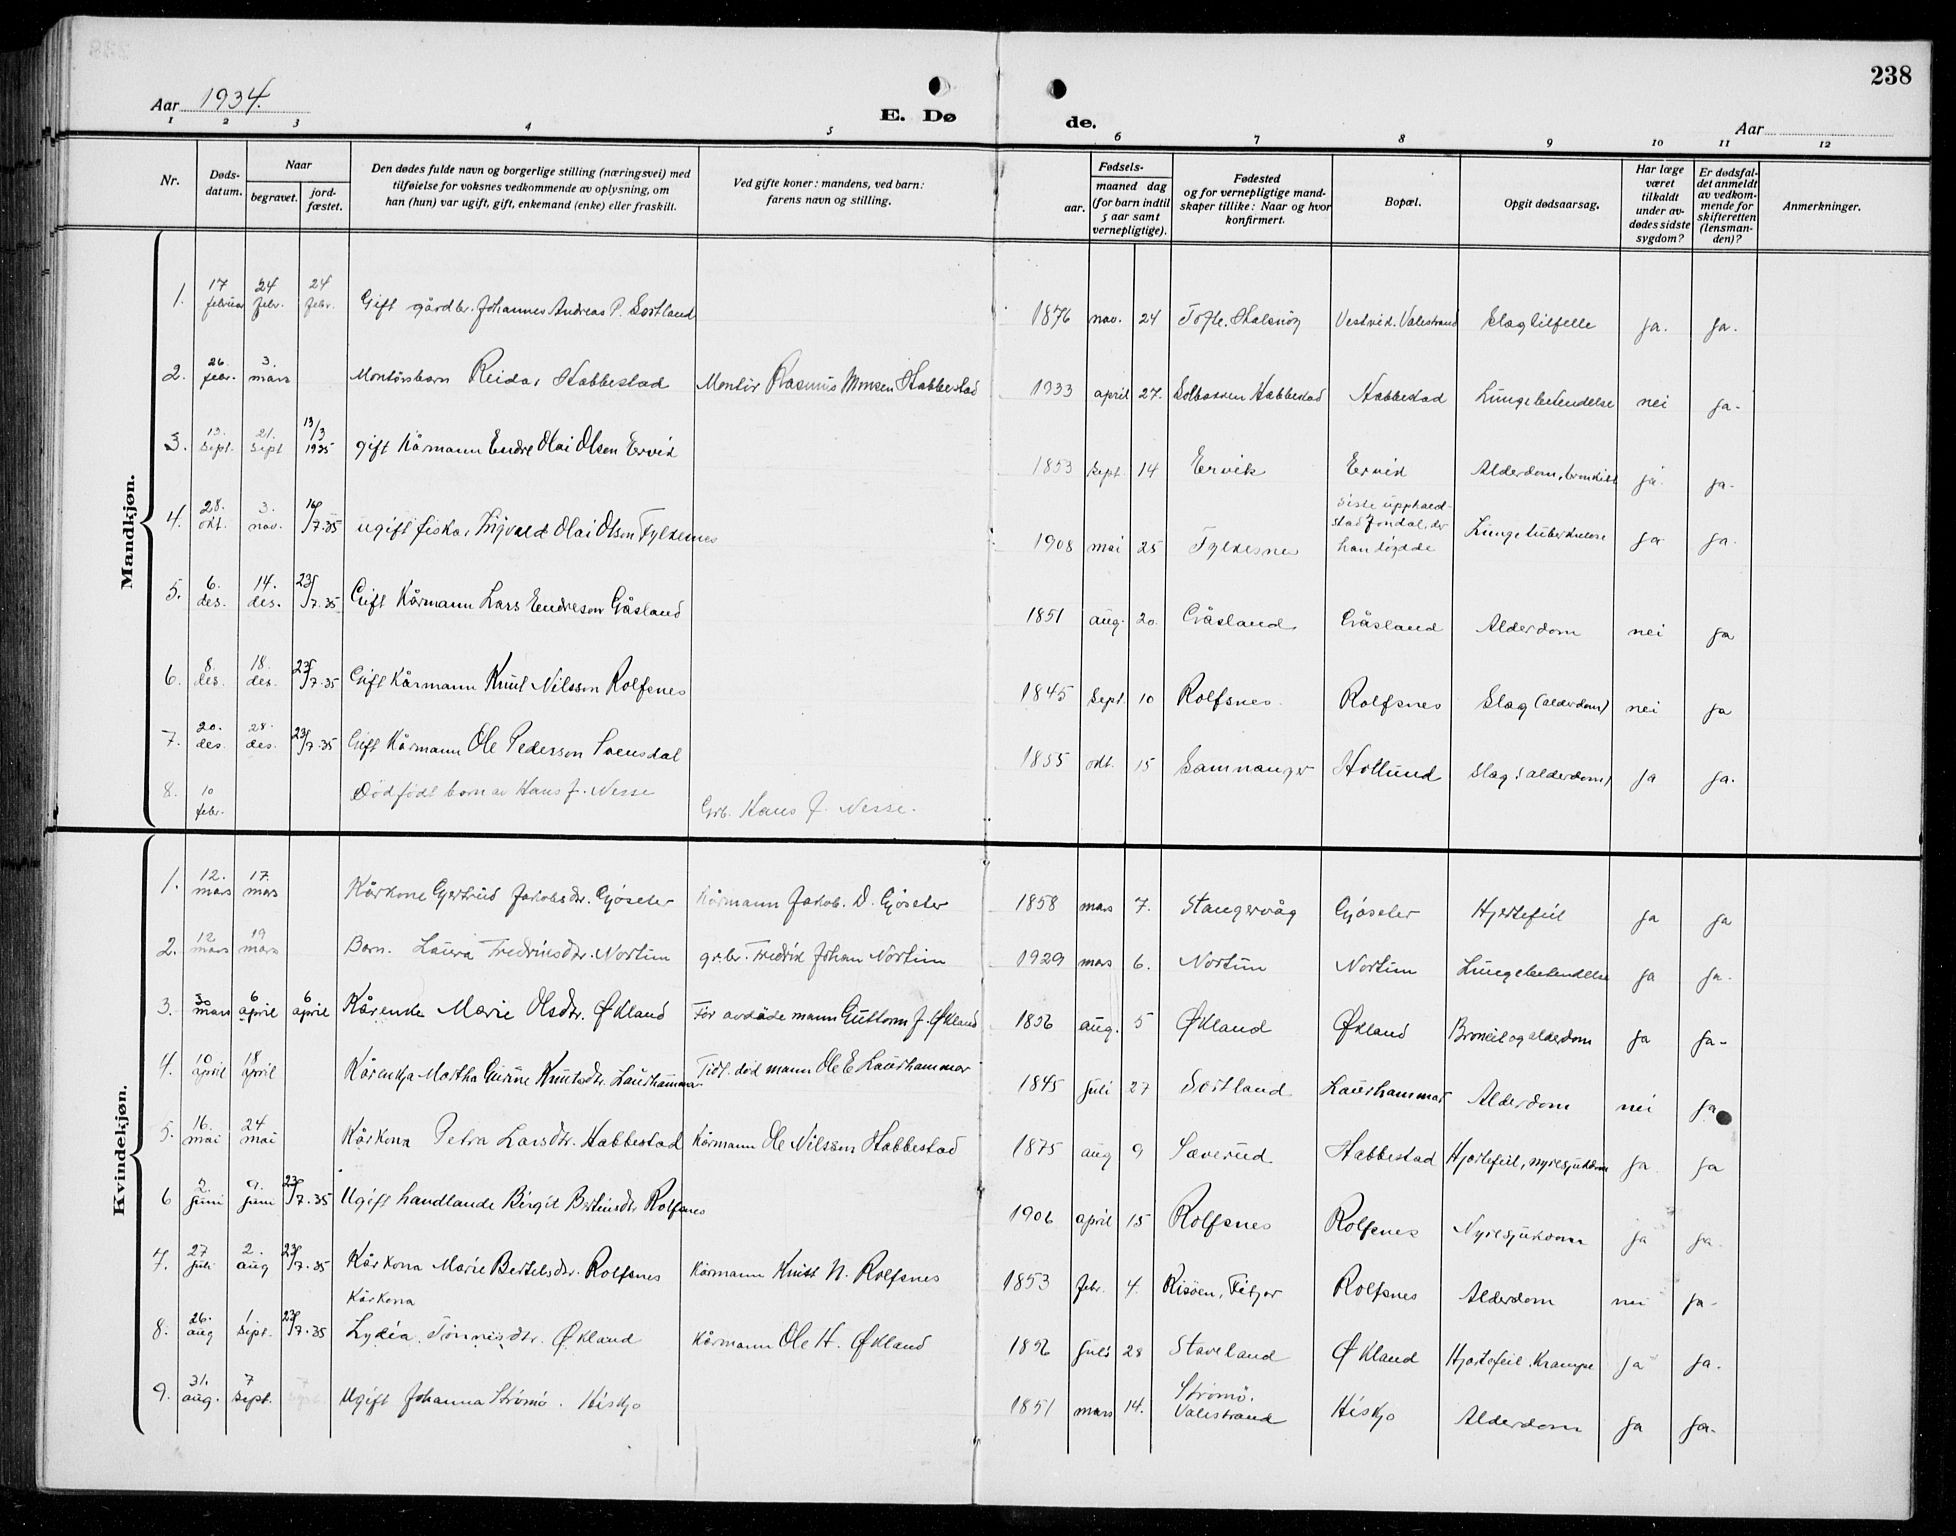 238
Aar 1934.
E. Døde.
Aar
1 2 3 4 5 6 7 8 9 10 11 12
Nr.
Dødsdatum.
Naar
begravet.
jordfæstet.
Den dødes fulde navn og borgerlige stilling (næringsvei) med
tilføielse for voksnes vedkommende av oplysning, om
han (hun) var ugift, gift, enkemand (enke) eller fraskilt.
Ved gifte koner: mandens, ved barn:
farens navn og stilling.
Fødsels-
aar.
maaned dag
(for barn indtil
5 aar samt
vernepligtige).
Fødested
og for vernepligtige mand-
skaper tillike: Naar og hvor
konfirmert.
Bopæl.
Opgit dødsaarsag.
Har læge
været
tilkaldt
under av-
dødes sidste
sygdom?
Er dødsfal-
det anmeldt
av vedkom-
mende for
skifteretten
(lensman-
den)?
Anmerkninger.
Mandkjøn.
1. 17 februar 24 febr. 24 febr. Gift gårdbr. Johannes Andreas P. Sortland 1876 nov. 24 Tofte, Halsnöy Vestvik. Valestrand Slagtilfelle ja. ja.
2. 26. febr. 3. mars Montörsbarn Reidar Habbestad Montör Rasmus Monsen Habbestad 1933 april 27. Solbakken Habbestad Habbestad Lungebetendelse nei ja.
3. 13. sept. 21. sept 13/3 1935 gift Kårmann Endre Olai Olsen Ervik 1853 sept. 14 Ervik Ervik Alderdom, bronkitt ja. ja.
4. 28. okt. 3. nov. 16/7.35 ugift fiskar Ingvald Olai Olson Fylkesnes 1908 mai 25 Fylkesnes siste upphald-
stad Jondal, der
han døydde Lungetuberkulose ja ja.
5. 6. des. 14. des. 23/7.35 Gift Kårmann Lars Endreson Gåsland 1851 aug. 20. Gåsland Gåsland Alderdom nei ja
6. 8. des. 18. des. 23/7.35 Gift Kårmann Knut Nilsson Rolfsnes 1845 sept. 10 Rolfsnes. Rolfsnes Slag (alderdom) nei ja
7. 20. des. 28. des. 23/7.35 Gift Kårmann Ole Pederson Svensdal 1855 okt. 15 Samnanger Hollund Slag (alderdom) ja ja.
8. 10 febr. Dödfödt barn av Hans J. Nesse Grb. Hans J. Nesse.
Kvindekjøn.
1. 12. mars 17. mars Kårkone Gertrud Jakobsdr. Gjöseter Kårmann Jakob. D. Gjöseter 1858 mars 7. Stangervåg Gjöseter Hjertefeil ja ja
2. 12 mars 19 mars Barn. Laura Fredriksdtr. Nortun grbr. Fredrik Johan Nortun 1929 mars 6. Nortun Nortun Lungebetendelse ja ja.
3. 30 mars 6 april 6 april Kårenke Marie Olsdtr. Økland För avdöde mann Guttorm J. Økland 1856 aug. 5 Økland Økland Bronkit og alderdom ja ja.
4. 10 april 18 april Kårenkja Martha Gurine Knutsdtr. Laurhammar Tidl. död mann Ole E Laurhammar 1845 juli 27 Sortland Laurhammar Alderdom nei ja
5. 16. mai 24 mai Kårkona Petra Larsdtr. Habbestad Kårmann Ole Nilssen Habbestad 1875 aug 9 Sæverud Habbestad Hjertefeil, nyresjukdom ja. ja
6 2. juni 9. juni 23/7.35 Ugift handlande Birgit Bertinsdtr Rolfsnes 1906 april 15 Rolfsnes Rolfsnes Nyresjukdom ja ja.
7. 27 juli 2. aug 23/7.35 Kårkona Marie Bertelsdtr. Rolfsnes Kårmann Knut N. Rolfsnes 1853 febr. 4. Risöen, Fitjar Rolfsnes Alderdom nei ja.
8. 26. aug 1 sept. 23/7.35 Kårkona
Lydia Tönnisdtr. Økland Kårmann Ole H. Økland 1856 juli 28 Staveland Økland Hjertefeil. Krampe ja ja.
9. 31. aug. 7 sept. Ugift Johanna Strömö. Hiskjo 1851 mars 14. Strömö.
Valestrand Hiskjo Alderdom ja ja.